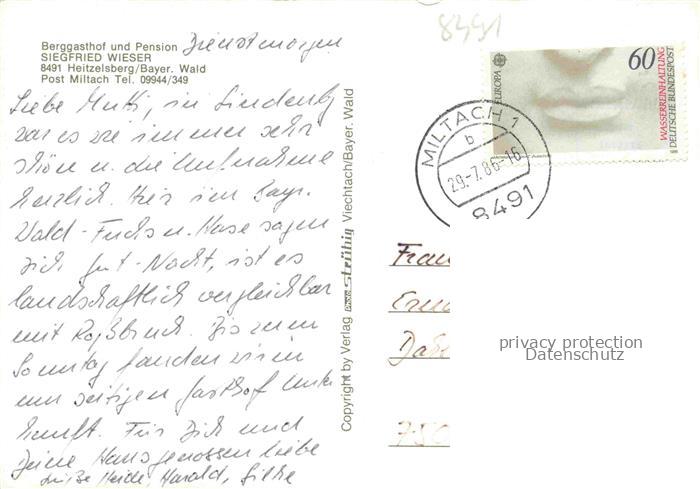 8491
Berggasthof und Pension
SIEGFRIED WIESER
8491 Heitzelsberg/Bayer. Wald
Post Miltach Tel. 09944/349
Dienstmorgen
Liebe Mutti, in Lindenbg
war es wie immer sehr
schön u. die Aufnahme
herzlich. Hier im Bayr.
Wald - Fuchs u. Hase sagen
sich gut-Nacht, ist es
landschaftlich vergleichbar
mit Roßbruch. Bis zum
Sonntag fanden wir im
seitigen Gasthof Unter
kunft. Für Dich und
Deine Hausgenossen liebe
Grüße Heide, Harald, Silke
Copyright by Verlag Photo Strübig Viechtach/Bayer. Wald
EUROPA
60
WASSERREINHALTUNG
DEUTSCHE BUNDESPOST
MILTACH 1
b
29.-7.86-16
8491
Frau
privacy protection
Datenschutz
750